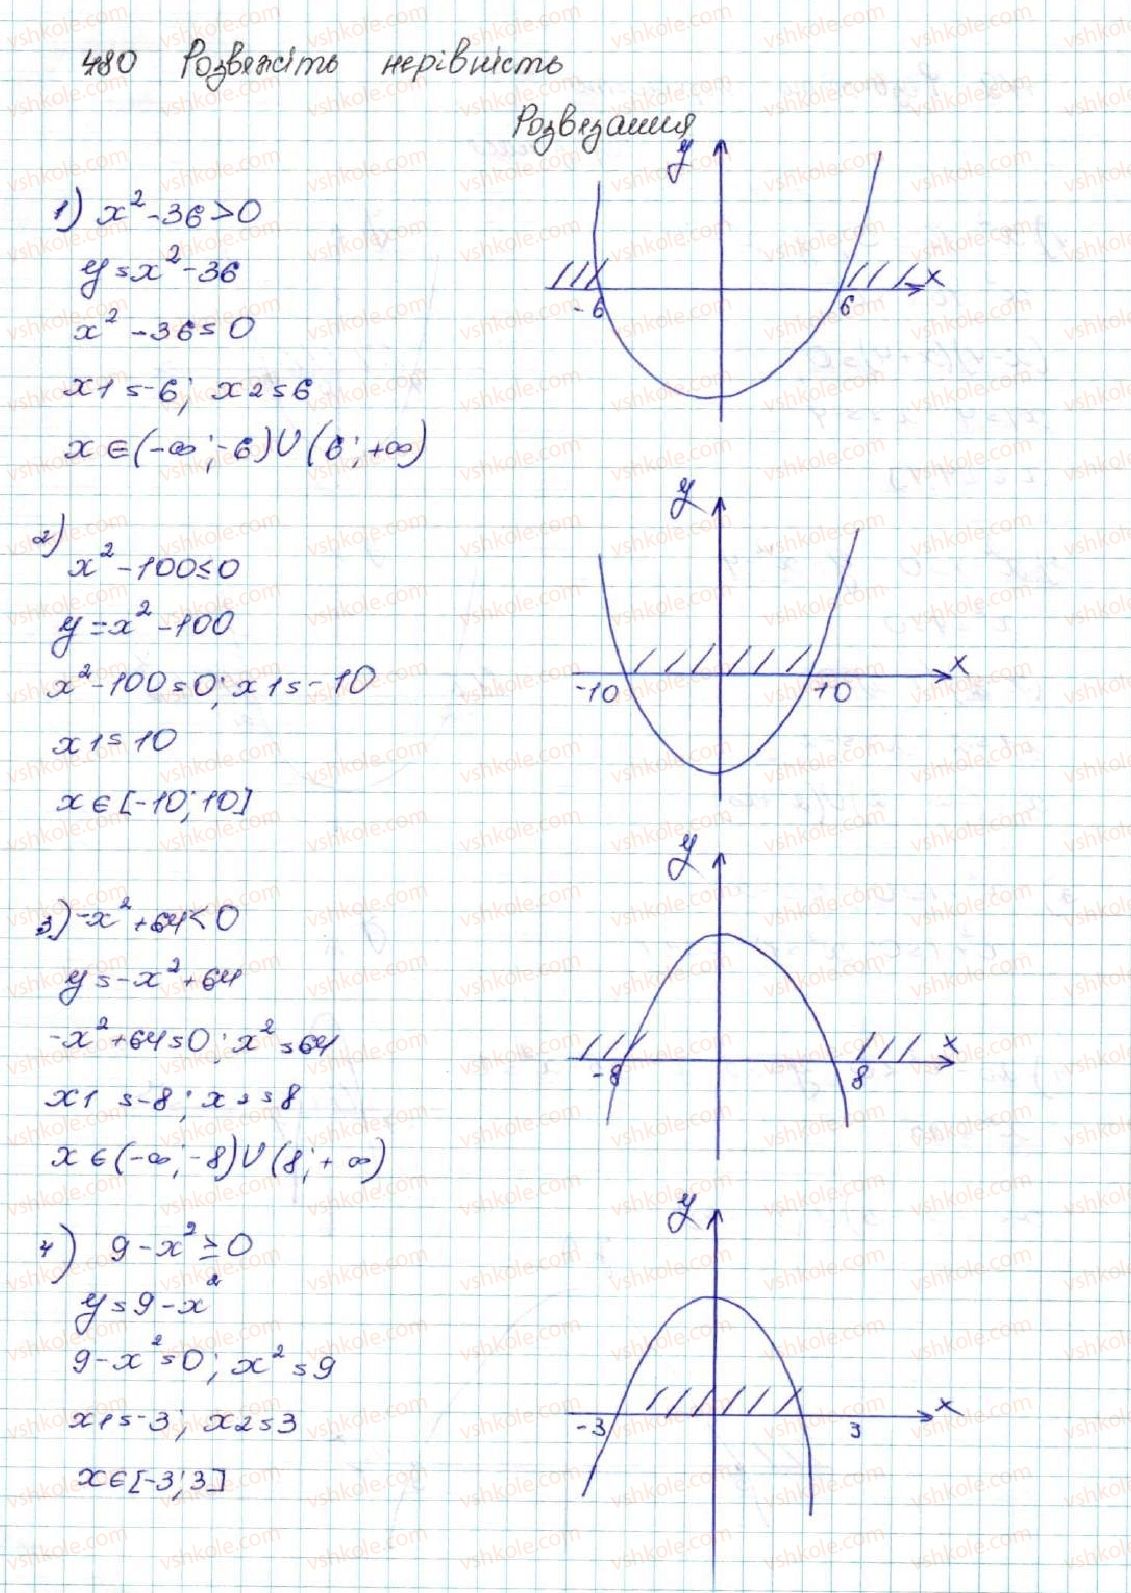 480 Розвяжіть нерівність
Розвязання
1) x²-36>0
y=x²-36
x²-36=0
x1=-6; x2=6
x∈(-∞;-6)∪(6;+∞)
y
x
-6
6
2)
x²-100≤0
y=x²-100
x²-100=0; x1=-10
x1=10
x∈[-10;10]
y
x
-10
10
3) -x²+64<0
y=-x²+64
-x²+64=0; x²=64
x1=-8; x2=8
x∈(-∞;-8)∪(8;+∞)
y
x
-8
8
4) 9-x²≥0
y=9-x²
9-x²=0; x²=9
x1=-3; x2=3
x∈[-3;3]
y
x
-3
3
vshkole.com